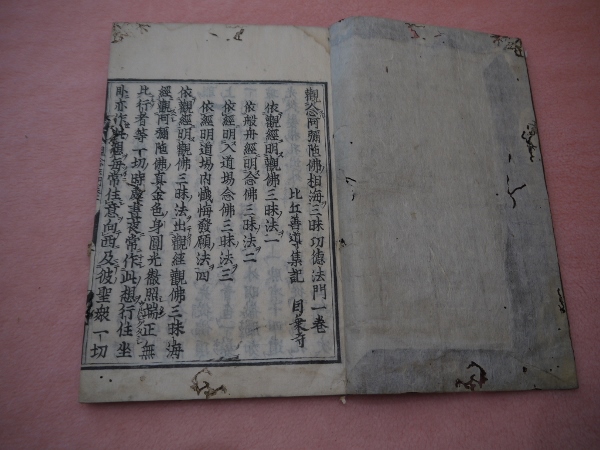 觀念阿彌陁佛相海三昧功德法門一卷
比丘善導集記 因衆寺
依觀經明觀佛三昧法一
依般舟經明念佛三昧法二
依經明入道場念佛三昧法三
依經明道場內懺悔發願法四
依觀經明觀佛三昧法出觀經觀佛三昧海
經觀阿彌陁佛真金色身圓光徹照端正無
比行者等一切時處晝夜常作此想行住坐
臥亦作此想每常住意向西及彼聖衆一切